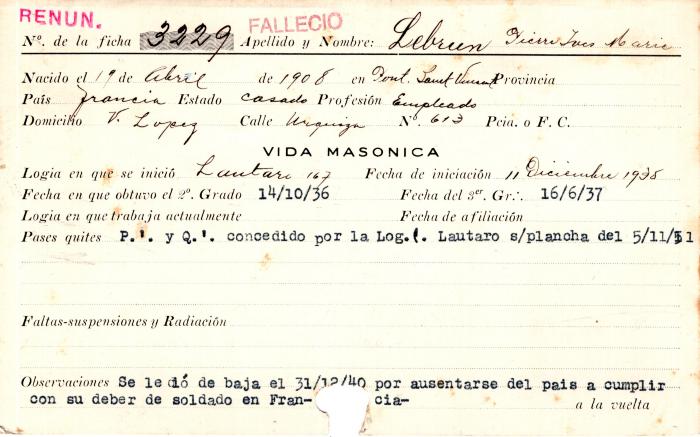 RENUN. FALLECIO
Nº. de la ficha 3229 Apellido y Nombre: Lebrun Pierre Ives Marie
Nacido el 19 de Abril de 1908 en Pont. Saint Vincent Provincia
País francia Estado casado Profesión Empleado
Domicilio V. Lopez Calle Urquiza N.º 613 Pcia. o F. C.
VIDA MASONICA
Logia en que se inició Lautaro 167 Fecha de iniciación 11 Diciembre 1935
Fecha en que obtuvo el 2º. Grado 14/10/36 Fecha del 3er. Gr∴. 16/6/37
Logia en que trabaja actualmente Fecha de afiliación
Pases quites P.'. y Q.'. concedido por la Log.(. Lautaro s/plancha del 5/11/51
Faltas-suspensiones y Radiación
Observaciones Se le dió de baja el 31/12/40 por ausentarse del pais a cumplir
con su deber de soldado en Fran- cia-
a la vuelta